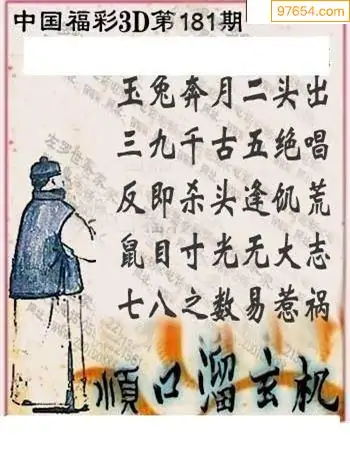 97654.com
中国福彩3D第181期
玉兔奔月二头出
三九千古五绝唱
反即杀头逢饥荒
鼠目寸光无大志
七八之数易惹祸
順口溜玄机